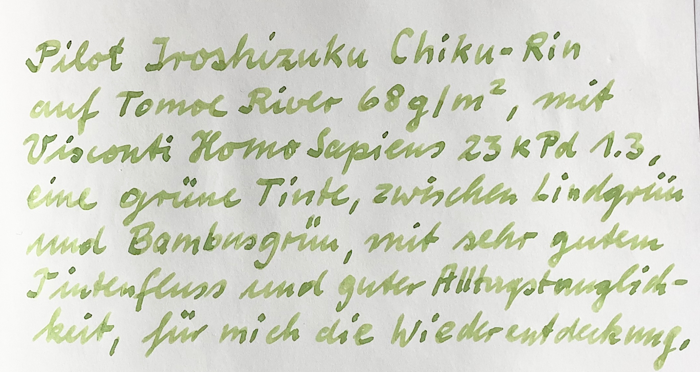 Pilot Iroshizuku Chiku-Rin
auf Tomoe River 68g/m², mit
Visconti Homo Sapiens 23kPd 1.3,
eine grüne Tinte, zwischen Lindgrün
und Bambusgrün, mit sehr gutem
Tintenfluss und guter Alltagstauglich-
keit, für mich die Wiederentdeckung.